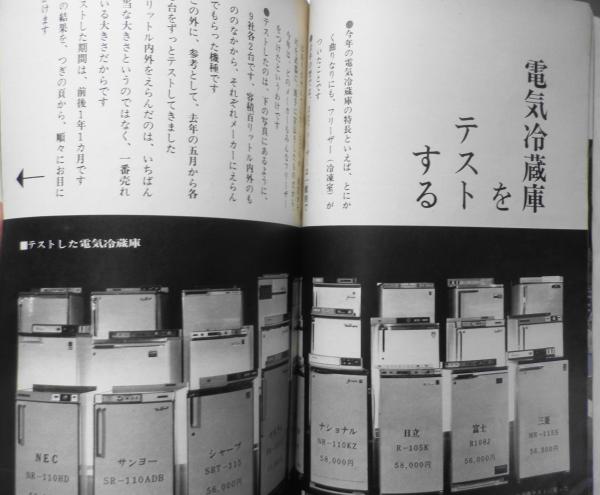 電気冷蔵庫
を
テスト
する
●今年の電気冷蔵庫の特長といえば、とにか
く曲りなりにも、フリーザー(冷凍室)が
ついたことです
をつけたというわけです
●テストしたのは、下の写真にあるように、
9社各2台です。容積百リットル内外のも
ののなかから、それぞれメーカーにえらん
でもらった機種です
この外に、参考として、去年の五月から各
台をずっとテストしてきました
リットル内外をえらんだのは、いちばん
当な大きさというのではなく、一番売れ
いる大きさだからです
ストした期間は、前後1年1カ月です
の結果を、つぎの頁から、順々にお目に
けます
■テストした電気冷蔵庫
NEC
SR-110HD
サンヨー
SR-110ADB
シャープ
56,000円
ナショナル
NR-110KZ
58,000円
日立
R-105K
58,000円
富士
56,000円
三菱
58,000円